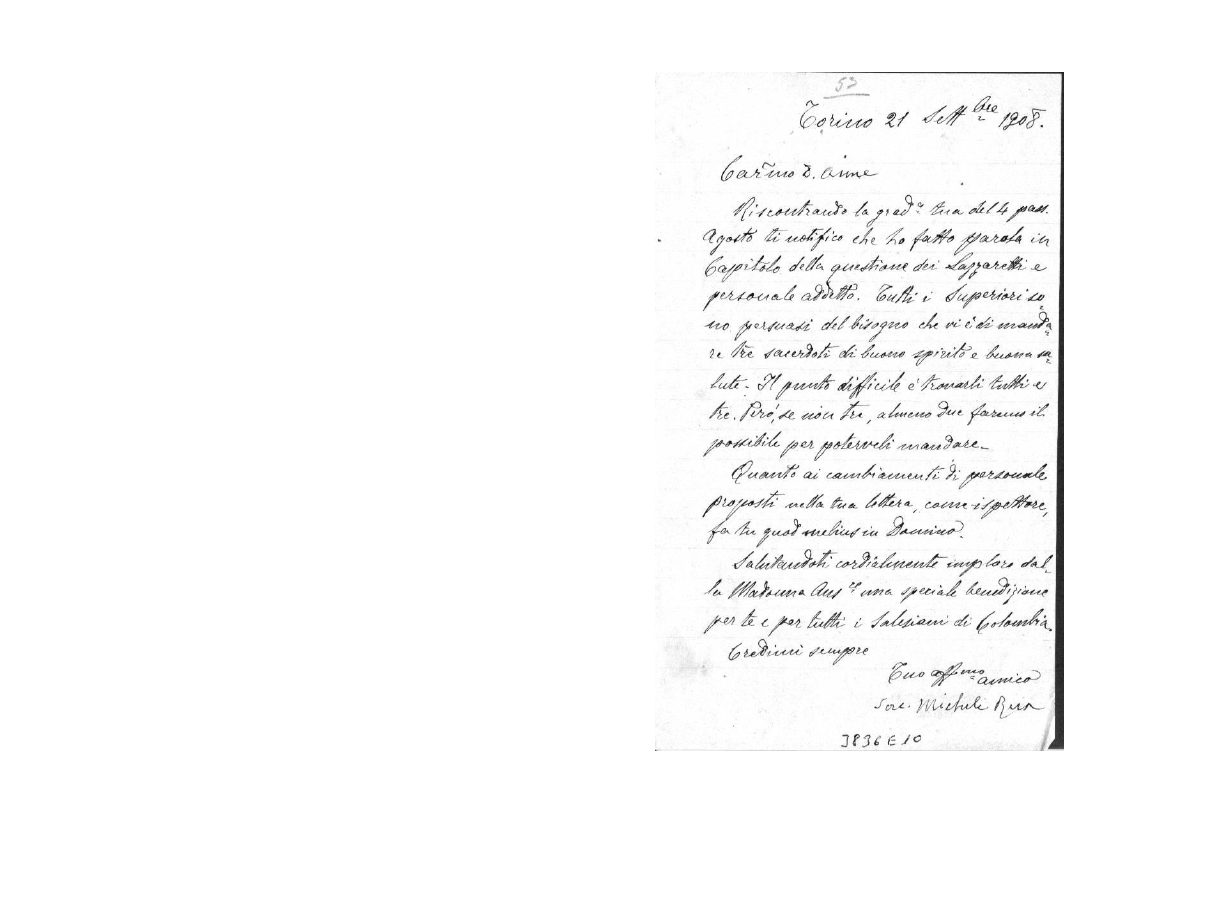 53
Torino 21 Sett.bre 1908.
Car.mo D. Aime
Riscontrando la grad.a tua del 4 pass.
Agosto ti notifico che ho fatto parola in
Capitolo della questione dei Lazzaretti e
personale addetto. Tutti i Superiori so-
no persuasi del bisogno che vi è di manda-
re tre sacerdoti di buono spirito e buona sa-
lute - Il punto difficile è trovarli tutti e
tre. Però, se non tre, almeno due faremo il
possibile per poterveli mandare _
Quanto ai cambiamenti di personale
proposti nella tua lettera, come ispettore,
fa tu quod melius in Domino.
Salutandoti cordialmente imploro dal-
la Madonna Aus.ce una speciale benedizione
per te e per tutti i Salesiani di Colombia.
Credimi sempre
Tuo aff.mo amico
Sac. Michele Rua
3836 E 10